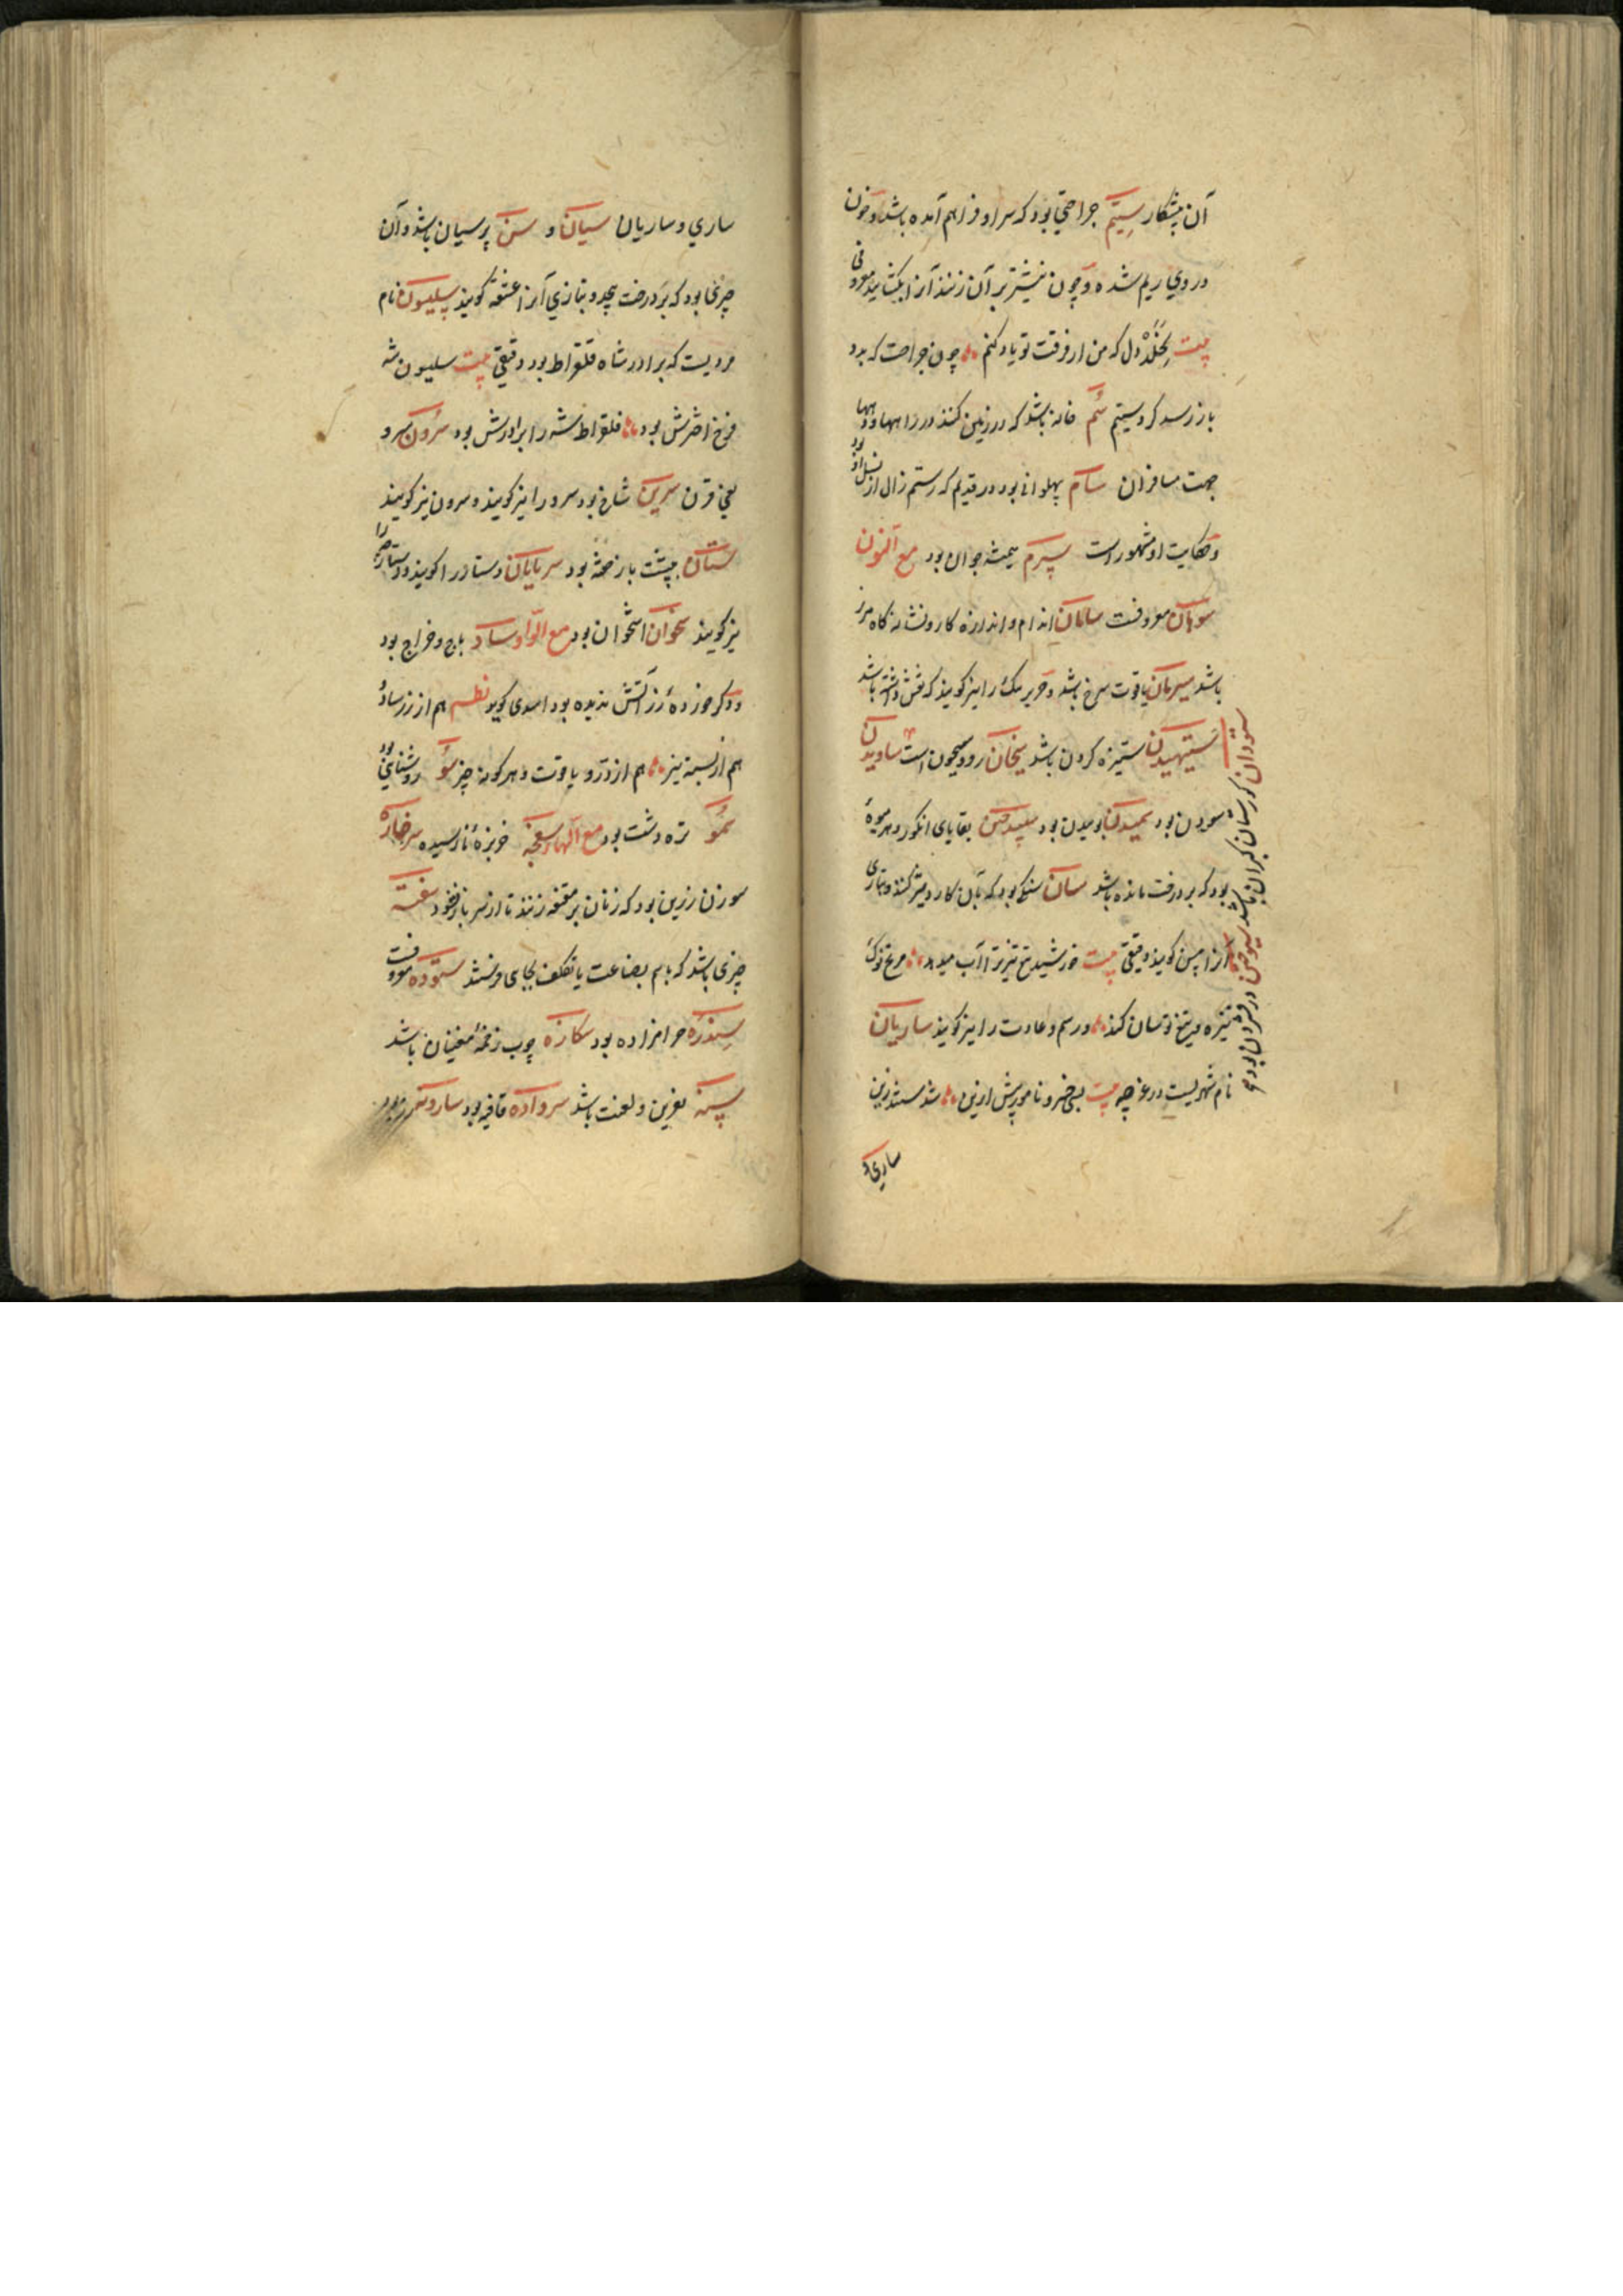 آن پیشکار سیتم جراحتی بود که سر او فراهم آمده باشد و خون
در وی ریم شده و چون نیشتر بر آن زنند آنرا بکشاید معروفی
بیت بخلد دل که من از فرقت تو یاد کنم چون جراحت که بدو
باز رسد کرد سیتم سم خانه باشد که در زمین کنند در راهها و دهها
جهت مسافران سام پهلوانی بود در قدیم که رستم زال از نسل او بود
و حکایت او مشهور است سپرم همیشه جوان بود مع النون
سوهان معروفست سامان اندام و اندازه کار و نشانه کاه مرز
باشد سیرمان یاقوت سرخ باشد و حریر تنک را نیز کویند که نقش داشته باشد
ستیهیدن ستیزه کردن باشد سیحان رود سیحون است ساویدن
سودن بود سمیدن بود بقایای انکور و هر میوهٔ
بود که بر درخت مانده باشد سان سنکی بود که بآن کارد تیز کنند و بتازی
آنرا مسن کویند دقیقی بیت خورشید تیغ تیز ترا آب میدهد مریخ نوک
نیزه و تیغ تو سان کند و رسم و عادت را نیز کویند ساریان
نام شهریست در غرچه بیت یکی خسرو نامور پیش ازین شدستند زین
ساری و
ستودان کورستان کبران باشد
ساری و ساریان سیان و سن پرسیان باشد و آن
چیزی بود که بر درخت پیچد و بتازی آنرا عشقه کویند سلیسون نام
مردیست که برادر شاه فلقراط بود دقیقی بیت سلیسون شه
فرخ اخترش بود فلقراط شه را برادرش بود سرون سرو
یعنی قرن سرین شاخ بود سرو را نیز کویند و سرون نیز کویند
ستان بپشت باز خفته بود سرپایان دستار را کویند و دستارچه را
نیز کویند سخوان استخوان بود مع الواو ساو باج و خراج بود
و دیکر خورده زر آتش ندیده بود اسدی کوید نظم هم از زر ساو
هم از بسته نیز هم از در و یاقوت و هر کونه چیز سو روشنایی بود
سمو تره دشت بود مع الهاء سفچه خربزه نارسیده سرخاره
سوزن زرین بود که زنان بر مقنعه زنند تا از سر باز نیفتد سفته
چیزی باشد که باسم بضاعت یا تکلف بجای فرستند ستوده معروفست
سندره حرامزاده بود سکازه چوب زخمهٔ مغنیان باشد
سپنه نفرین و لعنت باشد سرواده قافیه بود